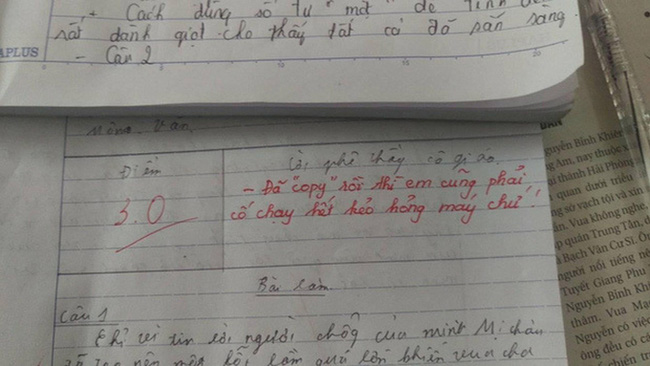 + Cách dùng số từ "một" để
rất đành giọt cho thấy tất cả đó sẵn sàng
APLUS
- Câu 2
0 5 10 15 20
Môn: Văn
Điểm
Lời phê thầy cô giáo.
- Đã "copy" rồi thì em cũng phải
3.0
cố chạy hết kẻo hỏng máy chứ!!
Bài làm
Câu 1
Chỉ vì tin lời người chồng của mình Mị châu
nên một lỗi lầm quá lớn khiến vua cha
guyễn Bỉnh Khiê
Am, nay thuộc x
ại thành Hải Phòng
quan dưới triều
ng sơ vạch tội và xin
n. Vua không nghe,
ập quán Trung Tân,
Bạch Vân Cư Sĩ. Ôn
người nổi tiếng
Tuyết Giang Phu
Nguyễn Bỉnh Khi
thâm. Vua Mạ
Nguyễn có việc
ông đều có